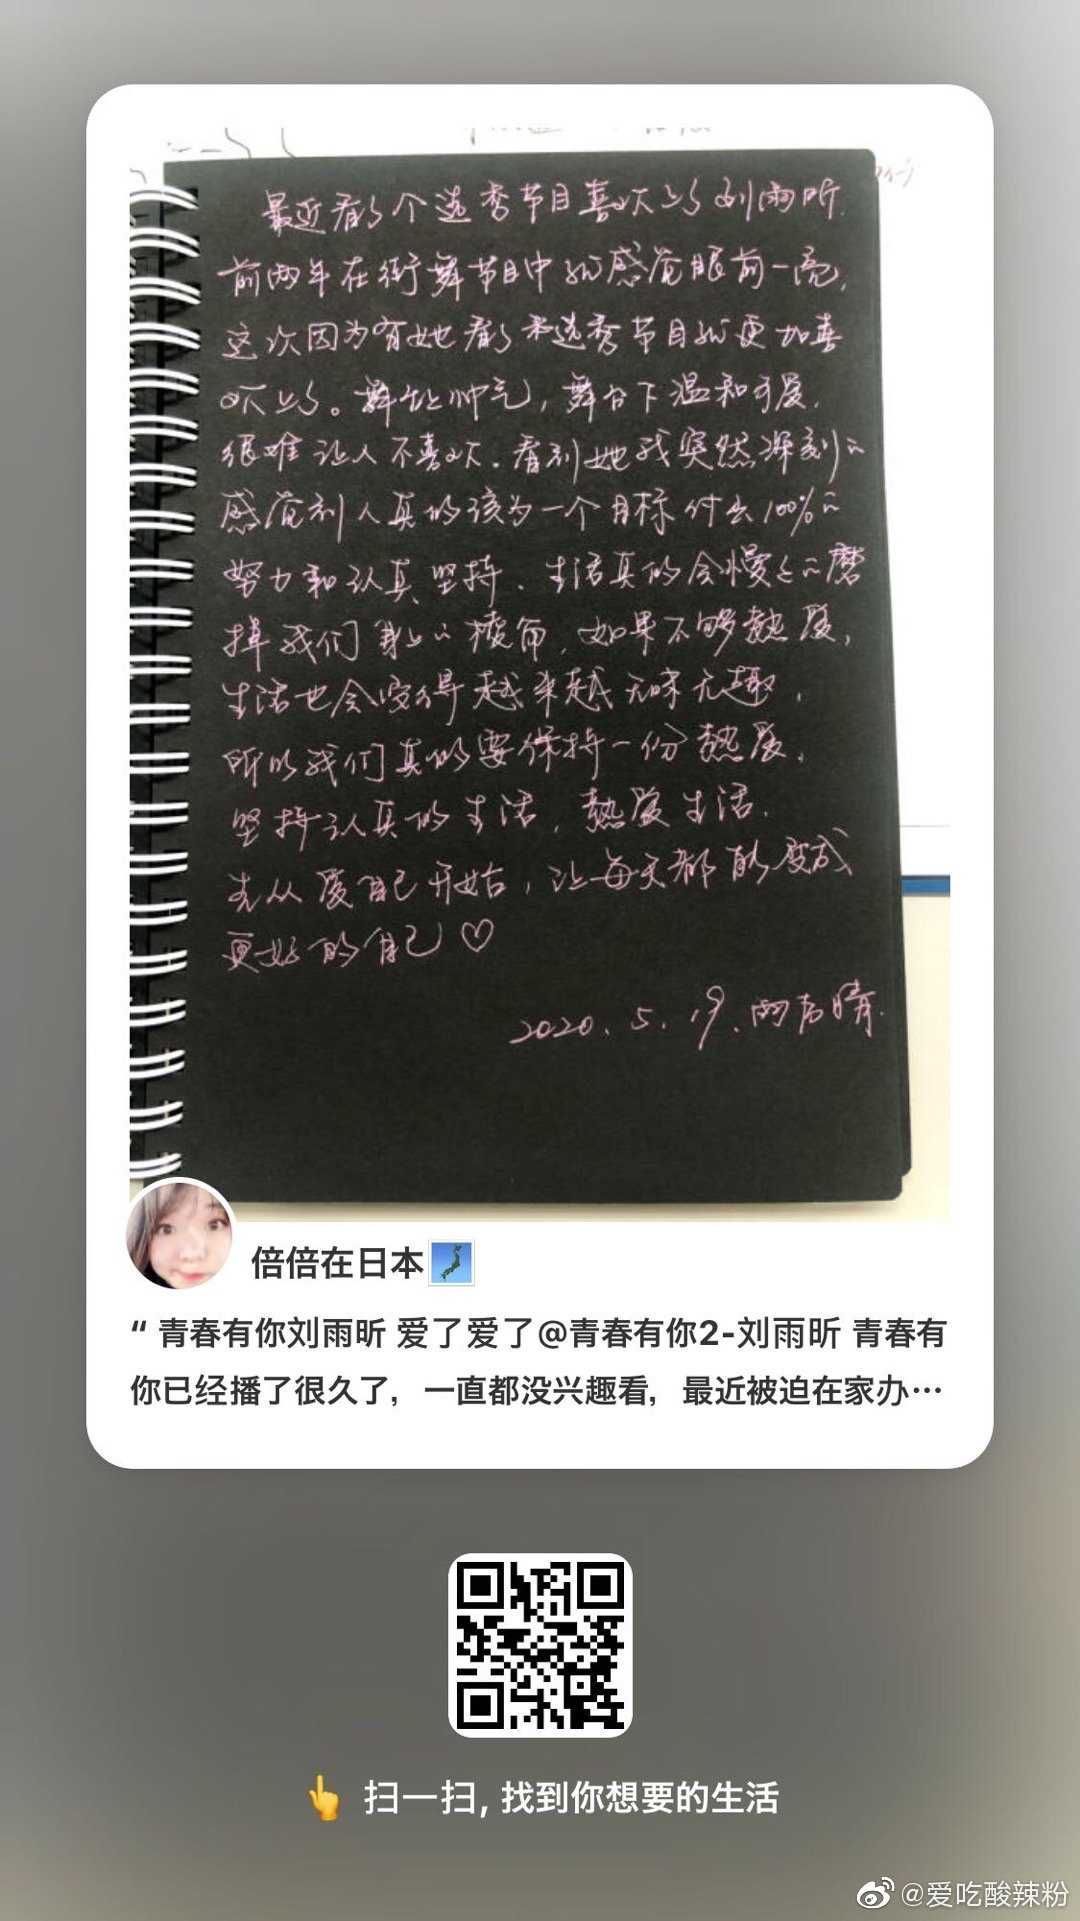 最近看了个选秀节目喜欢上了刘雨昕.
前两年在街舞节目中就感觉眼前一亮,
这次因为有她看了来选秀节目就更加喜
欢上了。舞台帅气,舞台下温和可爱,
很难让人不喜欢.看到她我突然深刻的
感觉到人真的该为一个目标付出100%的
努力和认真坚持.生活真的会慢慢的磨
掉我们身上的棱角,如果不够热爱,
生活也会变得越来越无味无趣,
所以我们真的要保持一份热爱,
坚持认真的生活,热爱生活.
先从爱自己开始,让每天都能变成
更好的自己♡
2020.5.19.雨后晴.
倍倍在日本🗾
“ 青春有你刘雨昕 爱了爱了@青春有你2-刘雨昕 青春有
你已经播了很久了,一直都没兴趣看,最近被迫在家办…
👆 扫一扫, 找到你想要的生活
@爱吃酸辣粉